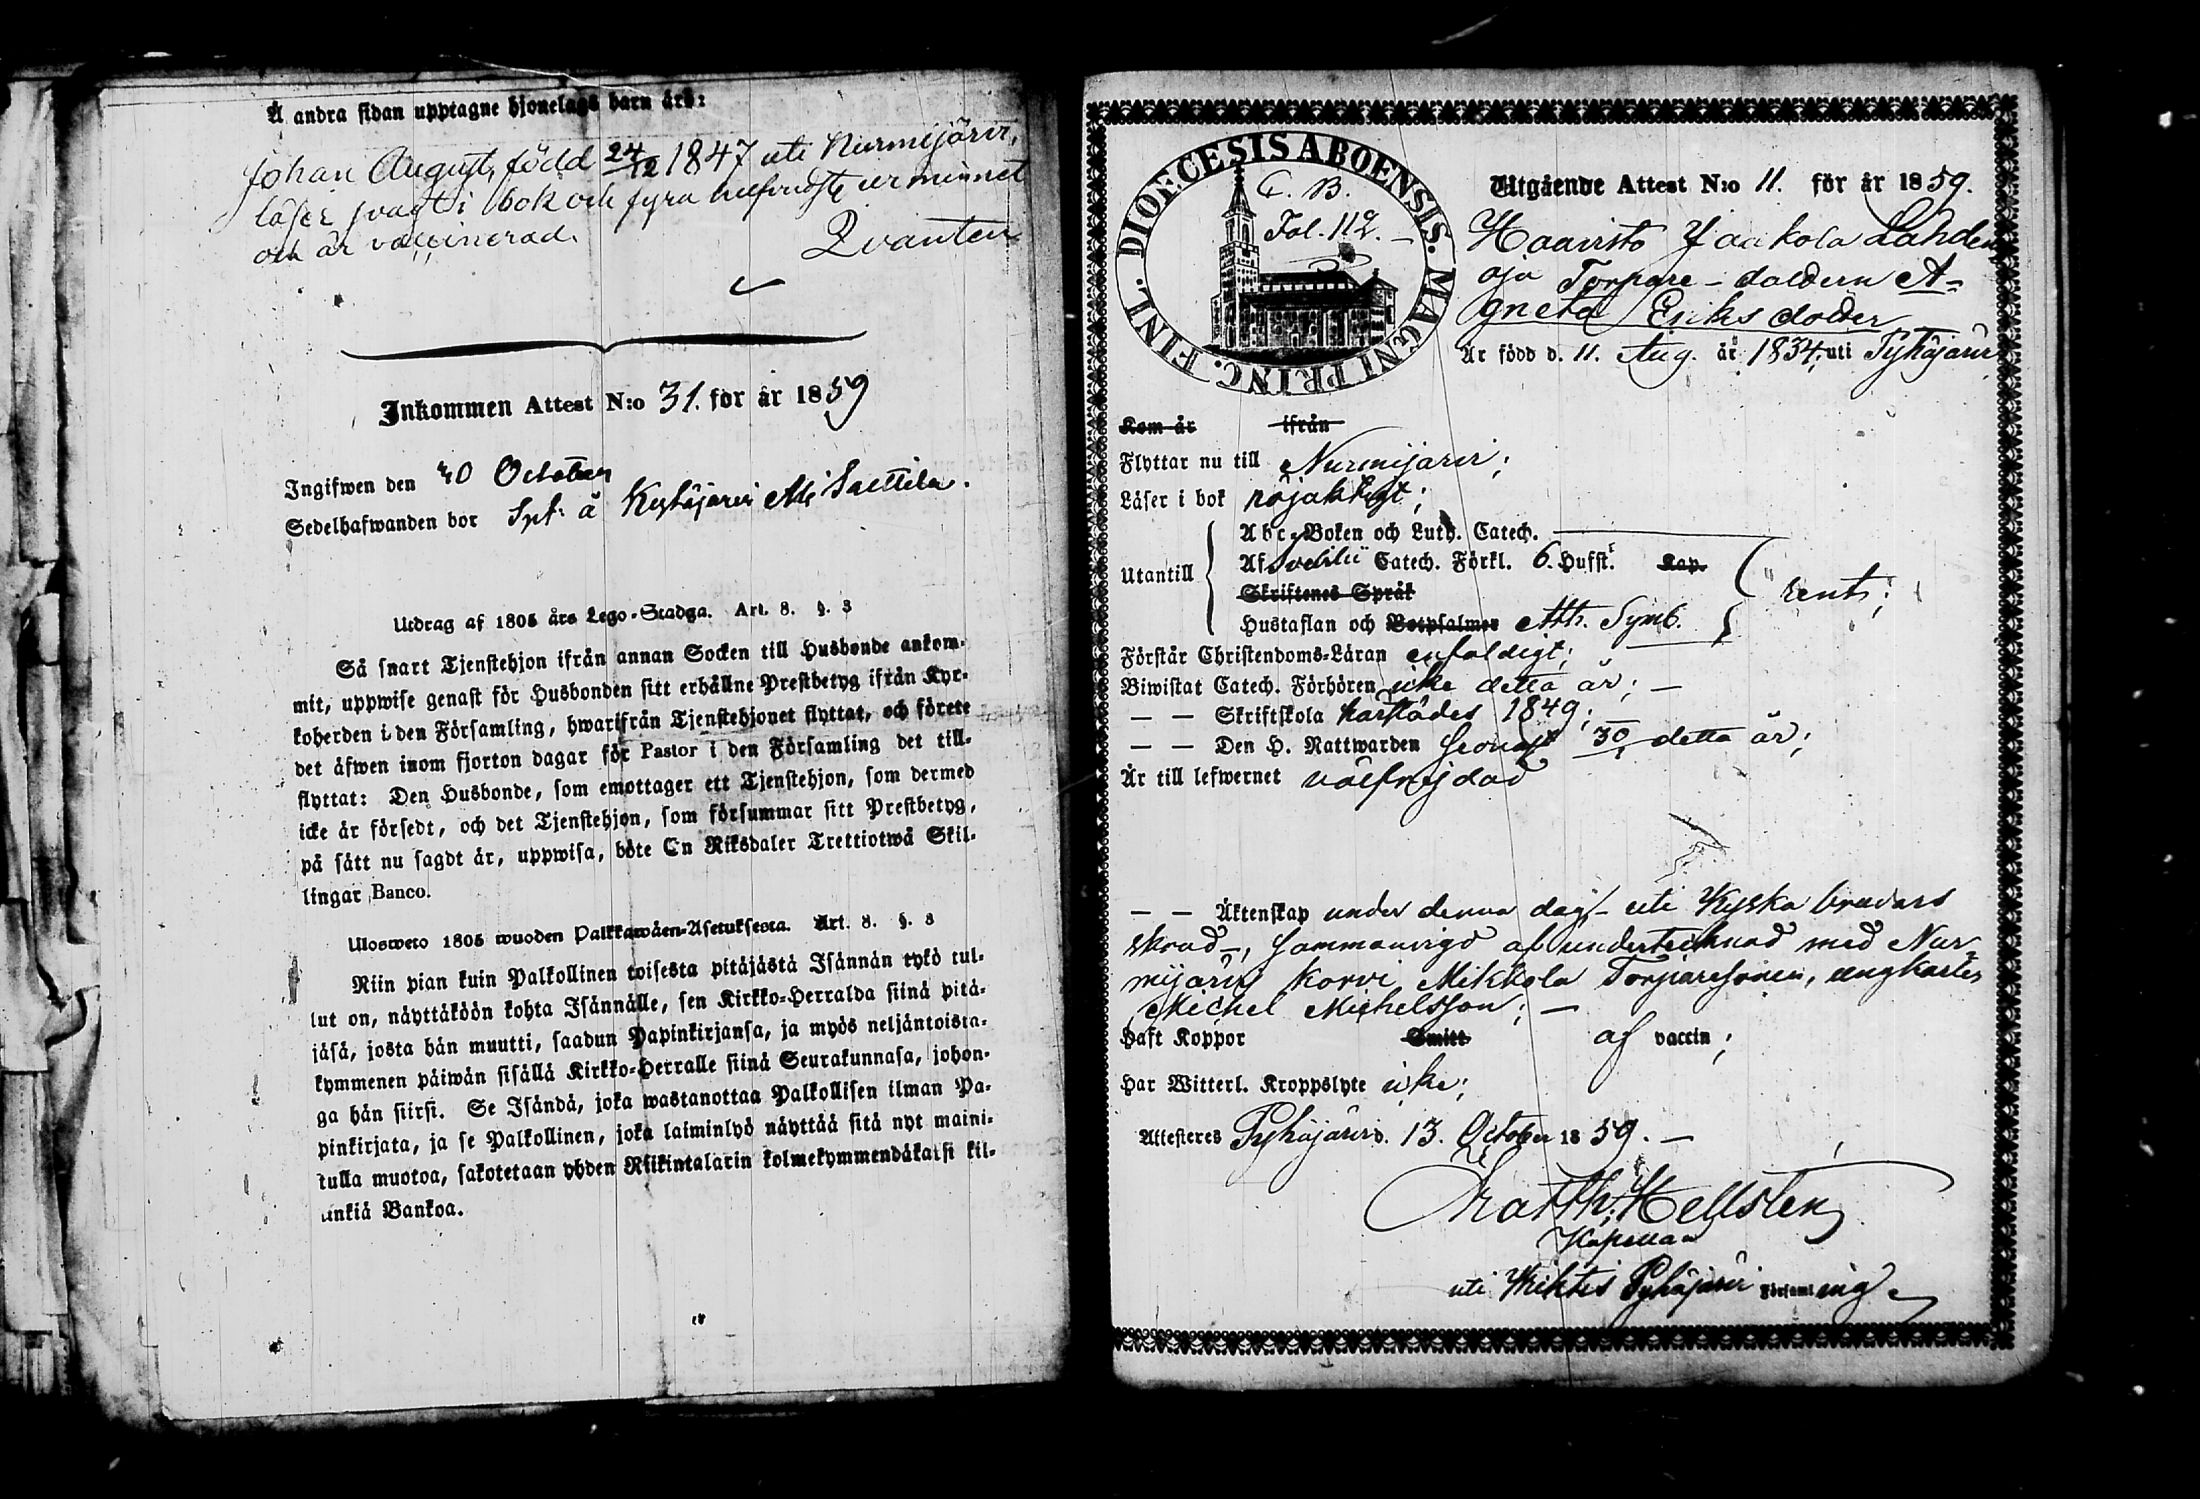 Å andra sidan upptagne hjonelags barn äro:
Johan August, född 24/12 1847 uti Nurmijärvi,
läser svagt i bok och fyra hufvudst. ur minnet
och är vaccinerad.
Qvanten
Inkommen Attest N:o 31. för år 1859
Ingifwen den 30 October
Sedelhafwanden bor Spt: å Kytäjärvi
Utdrag af 1805 års Lego-Stadga. Art. 8. §. 3
Så snart Tjenstehjon ifrån annan Socken till Husbonde ankom-
mit, uppwise genast för Husbonden sitt erhållne Prestbetyg ifrån Kyr-
koherden i den Församling, hwarifrån Tjenstehjonet flyttat, och förete
det äfwen inom fjorton dagar för Pastor i den Församling det till-
flyttat: Den Husbonde, som emottager ett Tjenstehjon, som dermed
icke är försedt, och det Tjenstehjon, som försummar sitt Prestbetyg,
på sätt nu sagdt är, uppwisa, böte En Riksdaler Trettiotwå Skil-
lingar Banco.
Ulosweto 1805 wuoden Palkkawäen-Asetuksesta. Art. 8. §. 3
Niin pian kuin Palkollinen toisesta pitäjästä Isännän tykö tul-
lut on, näyttäköön kohta Isännälle, sen Kirkko-Herralda siinä pitä-
jäsä, josta hän muutti, saadun Papinkirjansa, ja myös neljäntoista-
kymmenen päiwän sisällä Kirkko-Herralle siinä Seurakunnasa, johon-
ga hän siirsi. Se Isändä, joka wastanottaa Palkollisen ilman Pa-
pinkirjata, ja se Palkollinen, joka laiminlyö näyttää sitä nyt maini-
tulla muotoa, sakotetaan yhden Riikintalarin kolmekymmendäkaksi kil-
linkiä Bankoa.
DIOECESIS ABOENSIS. MAGNI PRINC. FINL.
C. B.
Fol. 112.
Utgående Attest N:o 11. för år 1859.
Haavisto Jaakola Lahden
oja Torpare-dottern A-
gneta Eriksdotter
Är född d. 11. Aug. år 1834, uti Pyhäjärvi
Kom år ifrån
Flyttar nu till Nurmijärvi;
Läser i bok nöjaktigt;
Utantill
Abc-Boken och Luth. Catech.
Af Svebilii Catech. Förkl. 6. Hufst. Kap.
Skriftenes Språk
Hustaflan och Botpsalmer Ath. Symb.
rent;
Förstår Christendoms-Läran enfaldigt;
Biwistat Catech. Förhören icke detta år;
— — Skriftskola 1849;
— — Den H. Nattwarden senast detta år;
Är till lefwernet välfrejdad
— — Äktenskap under denna dag uti Kyska bruders
skrud, sammanvigd af undertecknad med Nur-
mijärvi Korvi Mikkola Torparesonen, ungkarlen
Michel Michelsson;
Haft Koppor Smitt af vaccin;
Har Witterl. Kroppslyte icke;
Attesteras Pyhäjärvi d. 13. October 1859.
Matth: Hellsten
Kapellan
uti Wichtis Pyhäjärvi Församling